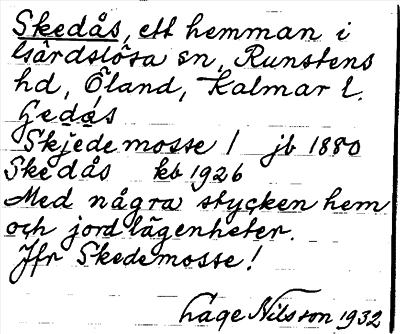 Skedås, ett hemman i
Gårdslösa sn, Runstens
hd, Öland, Kalmar l.
Gedås
Skjedemosse / jb 1880
Skedås kb 1926
Med några stycken hem
och jordlägenheter.
Jfr Skedemosse!
Lage Nilsson 1932